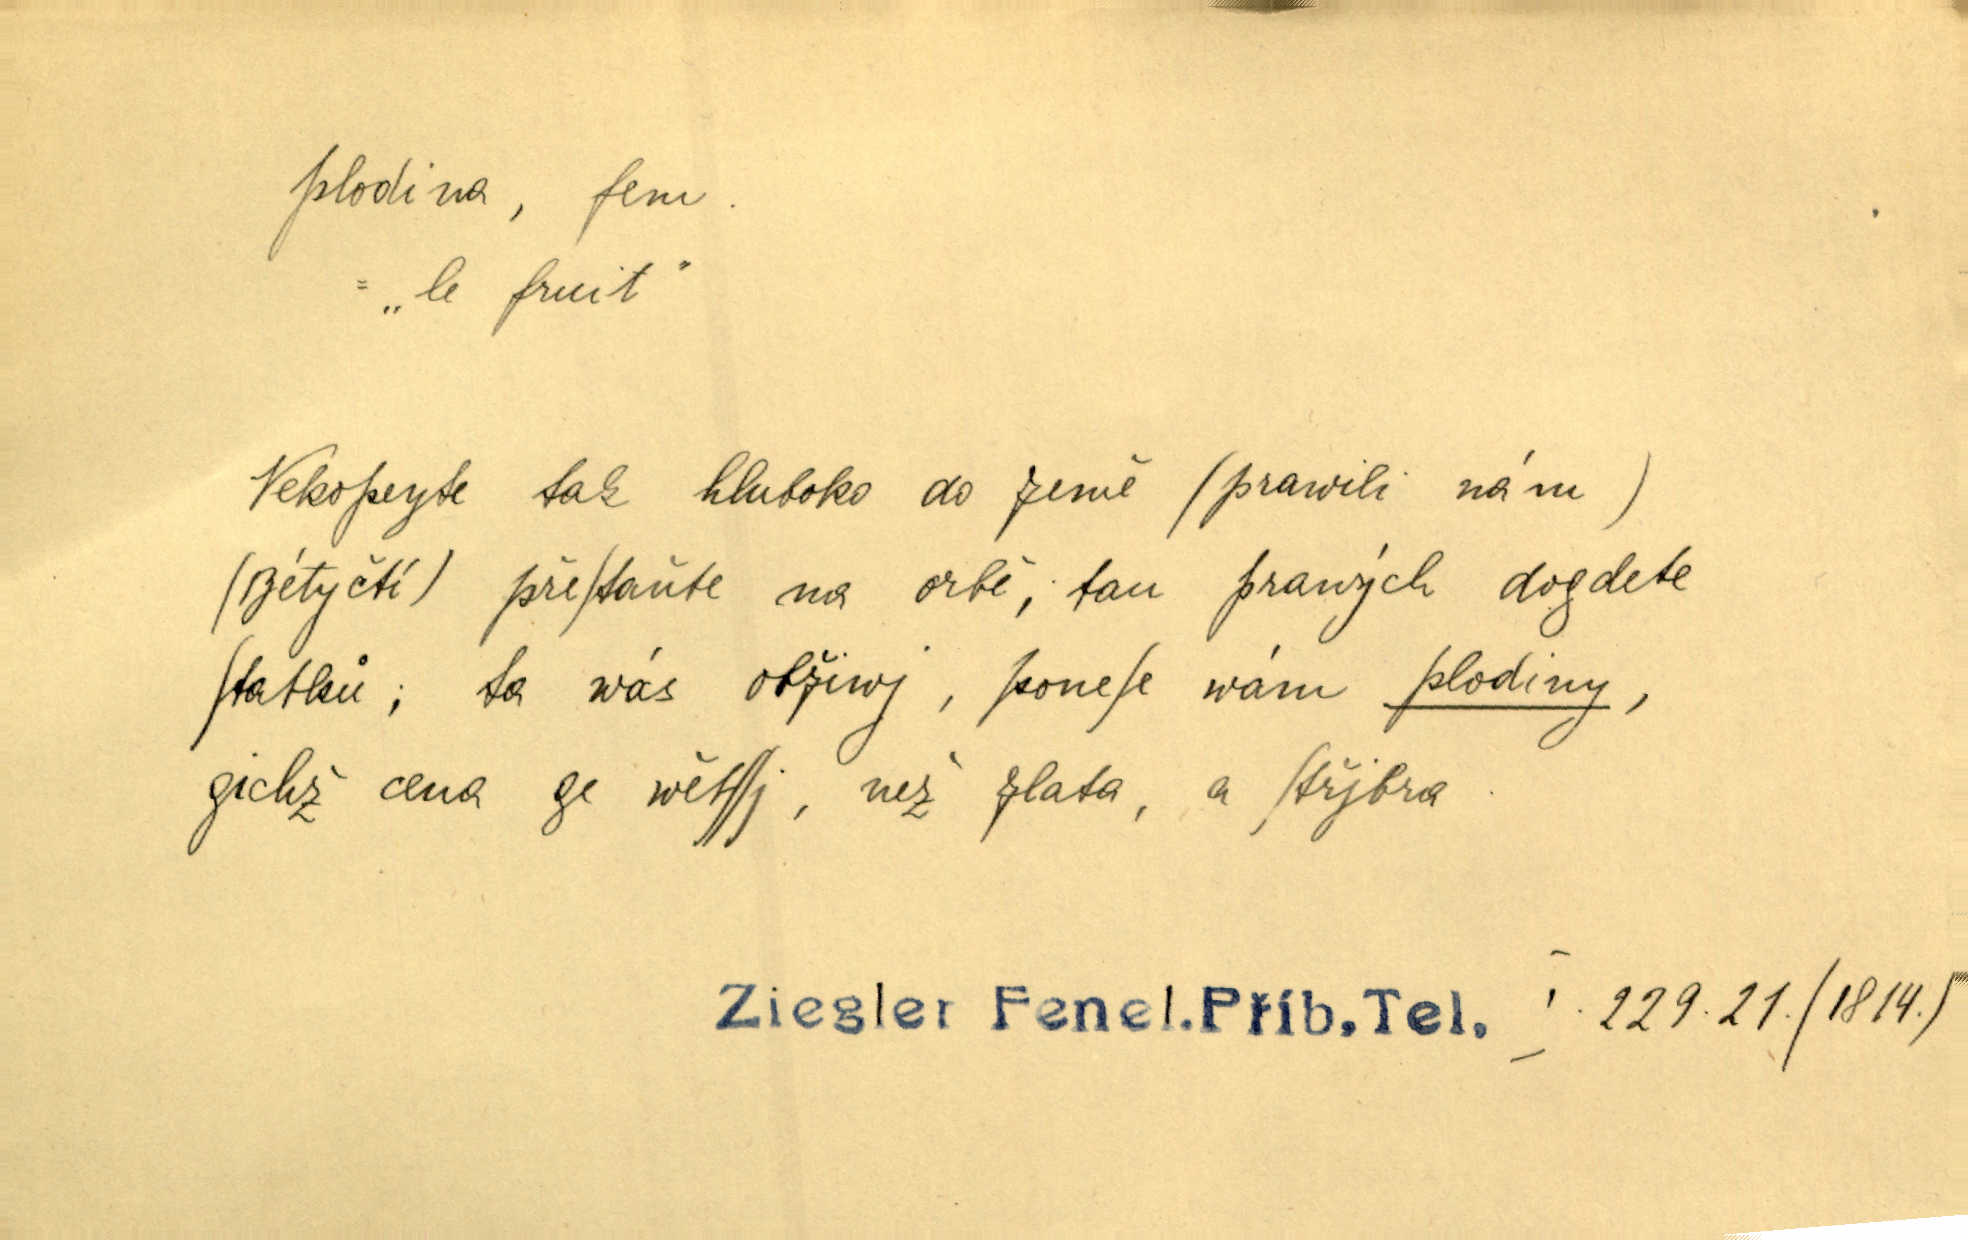 plodina, fem.
= „le fruit“
Nekopeyte tak hluboko do země (prawili nám)
(Bétyčtí) přeſtaňte na orbě, tau prawých dogdete
ſtatků; ta wás obžiwj, poneſe wám plodiny,
gichž cena ge wětſſj, než zlata, a ſtřjbra.
Ziegler Fenel.Příb.Tel. I. 229.21.(1814.)